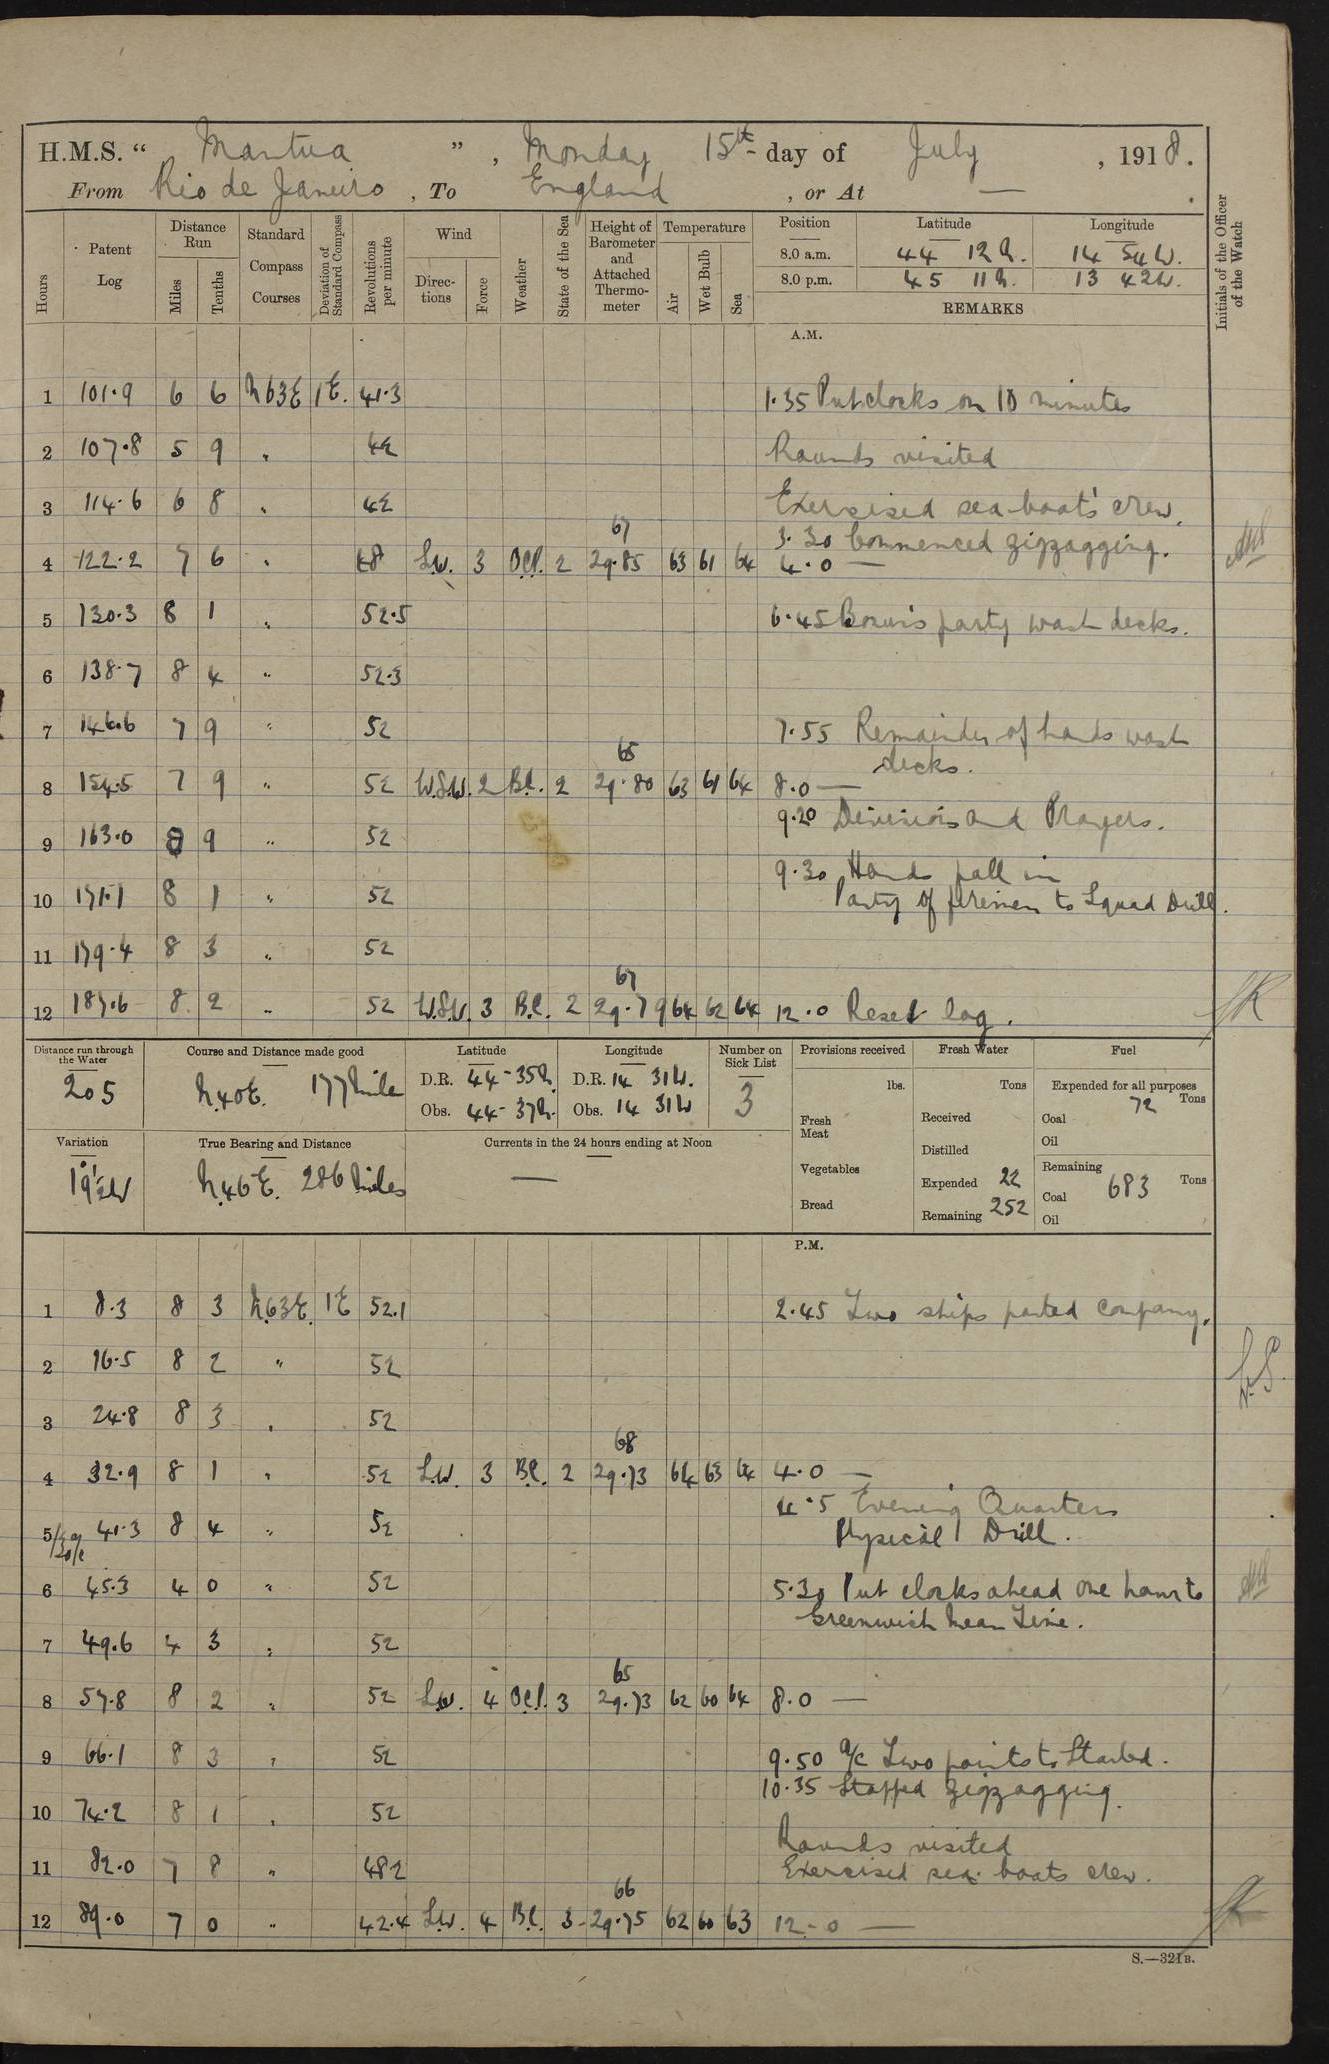 H.M.S. “ Mantua ” , Monday 15th day of July , 1918.
From Rio de Janeiro , To England , or At —
Hours
Patent Log
Distance Run
Miles
Tenths
Standard Compass Courses
Deviation of Standard Compass
Revolutions per minute
Wind
Directions
Force
Weather
State of the Sea
Height of Barometer and Attached Thermometer
Temperature
Air
Wet Bulb
Sea
Position Latitude Longitude
8.0 a.m. 44 12 N. 14 54 W.
8.0 p.m. 45 11 N. 13 42 W.
REMARKS
Initials of the Officer of the Watch
A.M.
1 101.9 6 6 N63E 1E. 41.3 1.35 Put clocks on 10 minutes
2 107.8 5 9 " 42 Rounds visited
3 114.6 6 8 " 42 Exercised sea-boats' crew.
67 3.30 Commenced zigzagging.
4 122.2 7 6 " 48 S.W. 3 O.C.P. 2 29.85 63 61 64 4.0 —
5 130.3 8 1 " 52.5 6.45 Bosun's party wash decks.
6 138.7 8 4 " 52.3
7 146.6 7 9 " 52 7.55 Remainder of hands wash
65 decks.
8 154.5 7 9 " 52 W.S.W. 2 B.C. 2 29.80 63 61 64 8.0 —
9.20 Divisions and Prayers.
9 163.0 8 9 " 52
9.30 Hands fall in
10 171.1 8 1 " 52 Party of firemen to Squad Drill.
11 179.4 8 3 " 52
67
12 187.6 8 2 " 52 W.S.W. 3 B.C. 2 29.79 64 62 64 12.0 Reset log.
Distance run through the Water
205
Course and Distance made good
N.40E. 177 Mile
Latitude
D.R. 44-35 N.
Obs. 44-37 N.
Longitude
D.R. 14 31 W.
Obs. 14 31 W
Number on Sick List
3
Provisions received
lbs.
Fresh Meat
Vegetables
Bread
Fresh Water
Tons
Received
Distilled
Expended 22
Remaining 252
Fuel
Expended for all purposes
72 Tons
Coal
Oil
Remaining
Coal 683 Tons
Oil
Variation
19½W
True Bearing and Distance
N.46E. 286 Miles
Currents in the 24 hours ending at Noon
—
P.M.
1 8.3 8 3 N.63E. 1E 52.1 2.45 Two ships parted company.
2 16.5 8 2 " 52
3 24.8 8 3 " 52
68
4 32.9 8 1 " 52 S.W. 3 B.C. 2 29.73 64 63 64 4.0 —
4.5 Evening Quarters
5 41.3 8 4 " 52 Physical Drill.
6 45.3 4 0 " 52 5.30 Put clocks ahead one hour to
Greenwich Mean Time.
7 49.6 4 3 " 52
65
8 57.8 8 2 " 52 S.W. 4 O.C.P. 3 29.73 62 60 64 8.0 —
9 66.1 8 3 " 52 9.50 a/c Two points to Starbd.
10.35 Stopped zigzagging.
10 74.2 8 1 " 52
Rounds visited
11 82.0 7 8 " 48.2 Exercised sea-boats crew.
66
12 89.0 7 0 " 42.4 S.W. 4 B.C. 3 29.75 62 60 63 12-0 —
S.—321B.